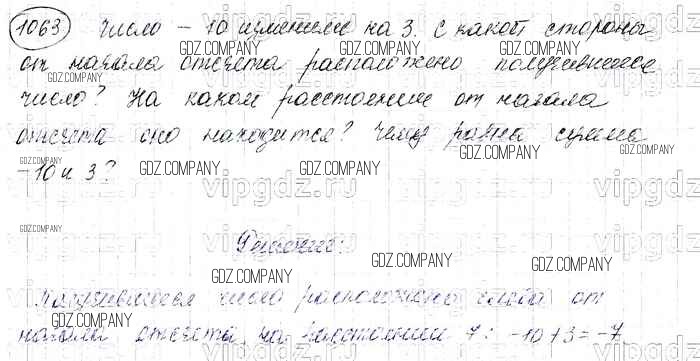 1063 Число – 10 изменили на 3. С какой стороны
GDZ.COMPANY GDZ.COMPANY GDZ.COMPANY
от начала отсчета расположено получившееся
GDZ.COMPANY
число? На каком расстоянии от начала
GDZ.COMPANY GDZ.COMPANY GDZ.COMPANY
отсчета оно находится? Чему равна сумма
GDZ.COMPANY GDZ.COMPANY GDZ.COMPANY GDZ.COMPANY
–10 и 3?
vipgdz.ru vipgdz.ru vipgdz.ru
GDZ.COMPANY
Решение:
GDZ.COMPANY GDZ.COMPANY
Получившееся число расположено слева от
GDZ.COMPANY GDZ.COMPANY GDZ.COMPANY
начала отсчета на расстоянии 7: –10+3=–7